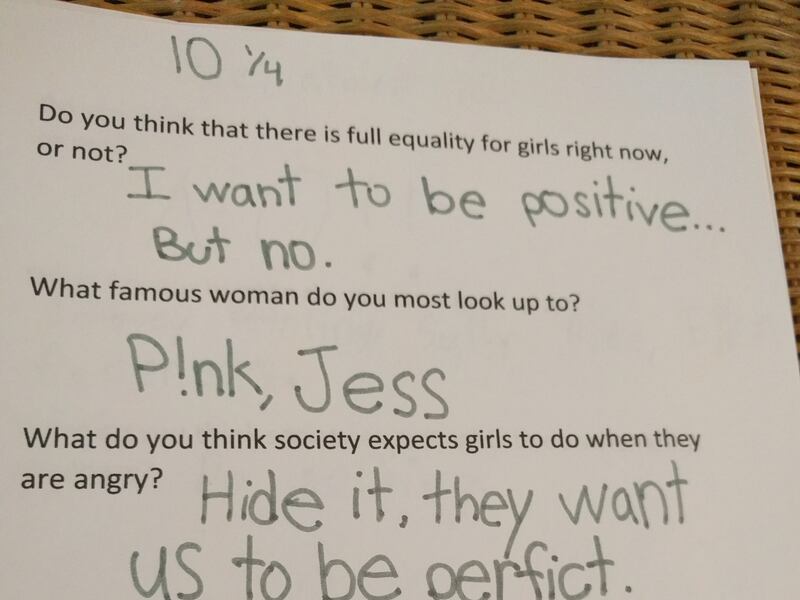 10 1/4
Do you think that there is full equality for girls right now,
or not?
I want to be positive...
But no.
What famous woman do you most look up to?
P!nk, Jess
What do you think society expects girls to do when they
are angry?
Hide it, they want
us to be perfict.